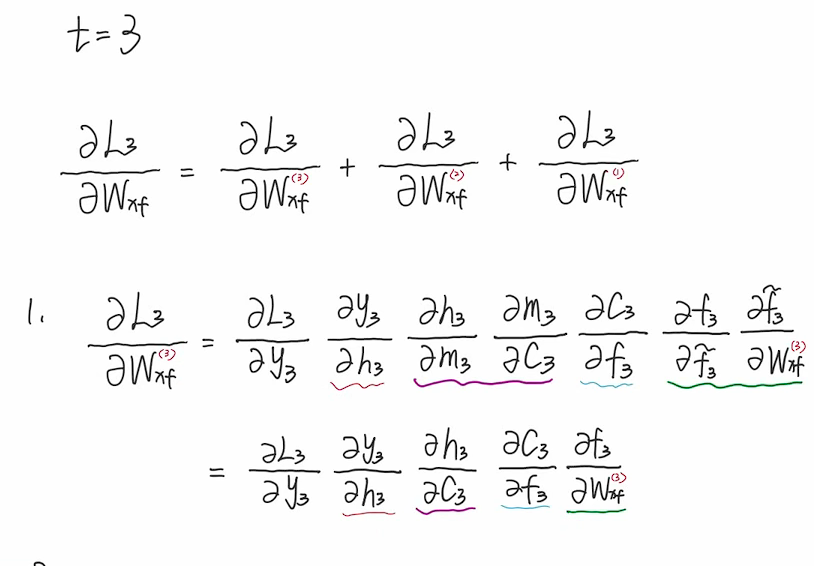 t = 3
∂L₃/∂W_xf = ∂L₃/∂W_xf⁽³⁾ + ∂L₃/∂W_xf⁽²⁾ + ∂L₃/∂W_xf⁽¹⁾
1. ∂L₃/∂W_xf⁽³⁾ = ∂L₃/∂y₃ ∂y₃/∂h₃ ∂h₃/∂m₃ ∂m₃/∂C₃ ∂C₃/∂f₃ ∂f₃/∂f̃₃ ∂f̃₃/∂W_xf⁽³⁾
= ∂L₃/∂y₃ ∂y₃/∂h₃ ∂h₃/∂C₃ ∂C₃/∂f₃ ∂f₃/∂W_xf⁽³⁾